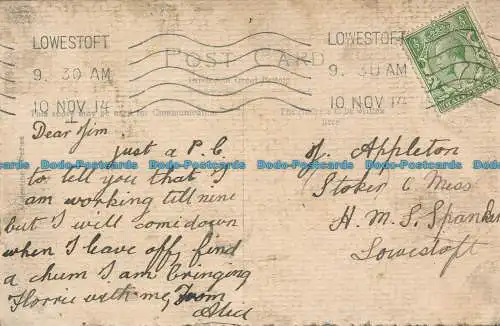 LOWESTOFT
9. 30 AM
10 NOV 14
POST CARD
LOWESTOFT
9. 30 AM
10 NOV 14
This space may be used for Communication
The address to be written here
Dear Jim.
just a P.C
to tell you that I
am working till nine
but I will comidown
when I leave off, find
a chum I am bringing
Florrie with me, From
J. Appleton
Stoker 6 Mess
H. M. S. Spanker
Lowestoft
Dodo-Postcards Dodo-Postcards Dodo-Postcards Dodo-Postcards Dodo-Postcards